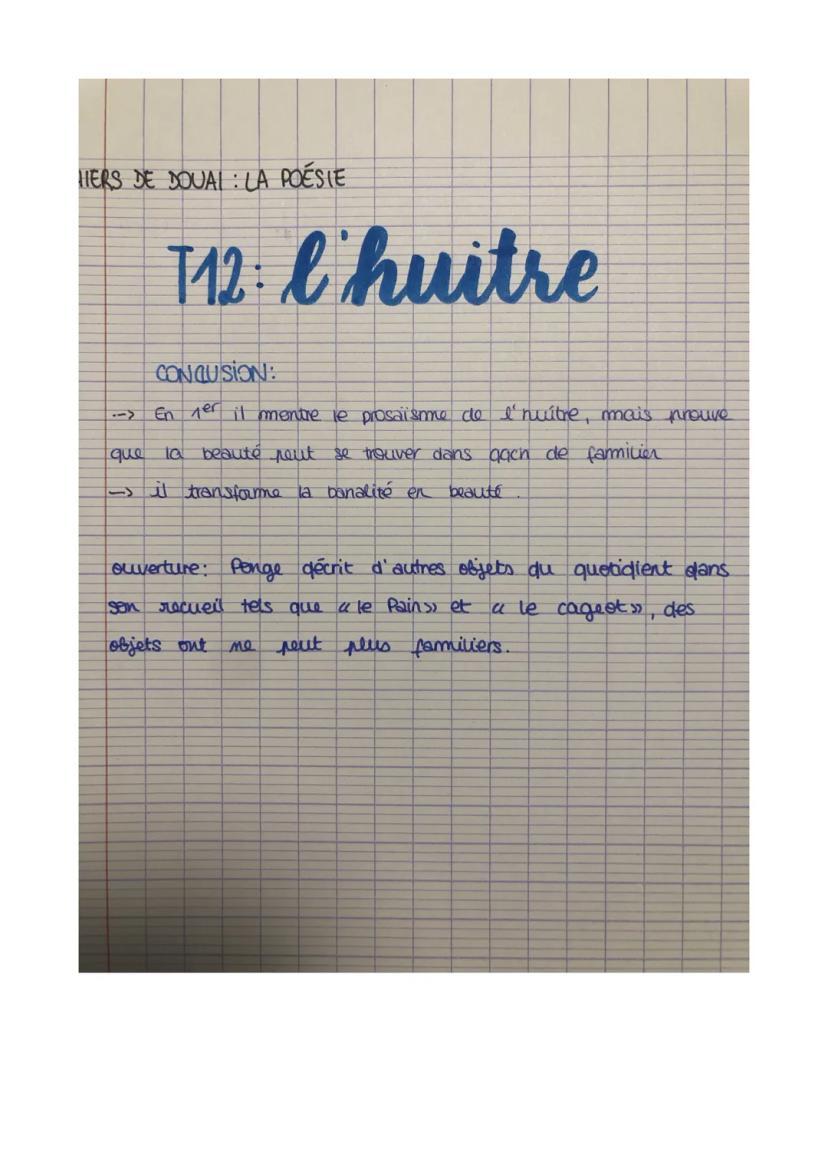 HIERS DE DOUAI : LA POÉSIE
T12: l'huitre
CONCLUSION:
--> En 1er il montre le prosaïsme de l'huître, mais prouve
que la beauté peut se trouver dans qqch de familier
--> il transforme la banalité en beauté.
ouverture: Ponge décrit d'autres objets du quotidient dans
son recueil tels que « le Pain » et « le cageot », des
objets ont ne peut plus familiers.